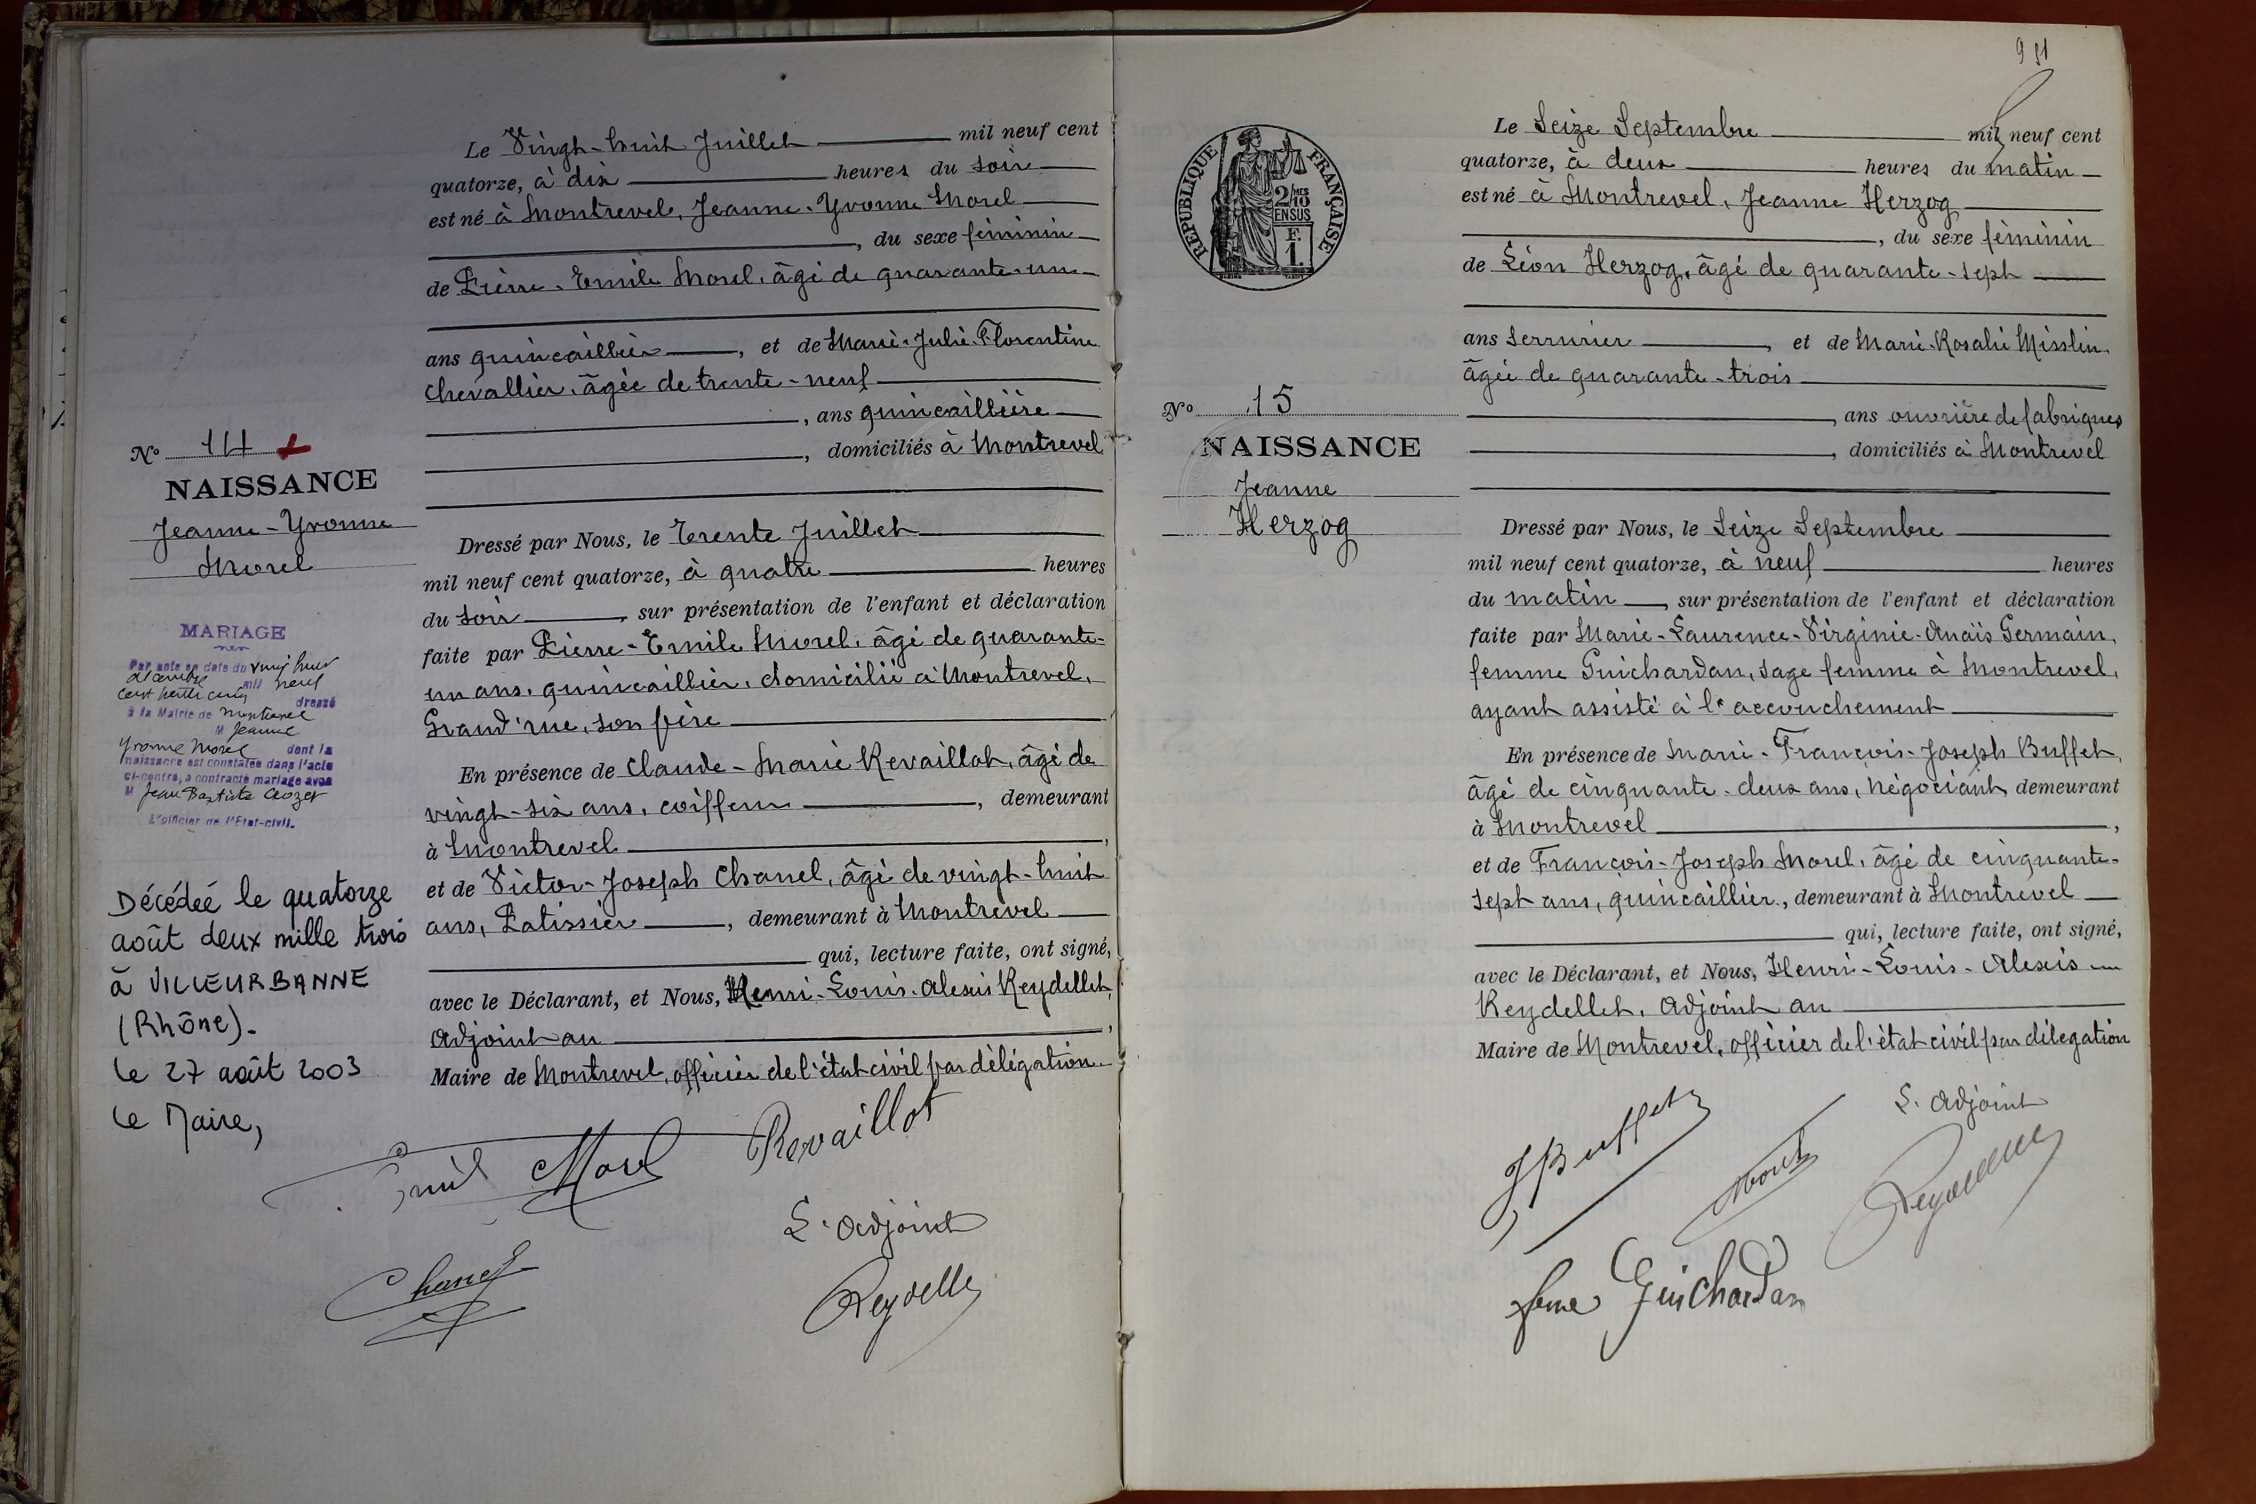 Le Vingt-huit Juillet mil neuf cent
quatorze, à dix heures du soir
est né à Montrevel, Jeanne-Yvonne Morel
, du sexe féminin
de Pierre-Emile Morel, âgé de quarante-un
ans quincaillier, et de Marie-Julie-Florentine
Chevallier, âgée de trente-neuf
, ans quincaillière
, domiciliés à Montrevel
No 14
NAISSANCE
Jeanne-Yvonne
Morel
Dressé par Nous, le Trente Juillet
mil neuf cent quatorze, à quatre heures
du soir, sur présentation de l'enfant et déclaration
faite par Pierre-Emile Morel, âgé de quarante-
un ans, quincaillier, domicilié à Montrevel,
Grand'rue, son père
En présence de Claude-Marie Revaillot, âgé de
vingt-six ans, coiffeur, demeurant
à Montrevel,
et de Victor-Joseph Chanel, âgé de vingt-huit
ans, Patissier, demeurant à Montrevel
qui, lecture faite, ont signé,
avec le Déclarant, et Nous, Henri-Louis-Alexis Reydellet,
Adjoint au,
Maire de Montrevel, officier de l'état civil par délégation.
MARIAGE
Par acte en date du vingt huit
décembre mil neuf
cent trente cinq dressé
à la Mairie de Montrevel
M Jeanne
Yvonne Morel dont la
naissance est constatée dans l'acte
ci-contre, a contracté mariage avec
M Jean Baptiste Crozet
L'officier de l'Etat-civil.
Décédée le quatorze
août deux mille trois
à VILLEURBANNE
(Rhône).
Le 27 août 2003
Le Maire,
Emile Morel
Revaillot
L'adjoint
Chanel
Reydellet
RÉPUBLIQUE FRANÇAISE
2/10 MES
EN SUS
F.
1.
Le Seize Septembre mil neuf cent
quatorze, à deux heures du matin
est né à Montrevel, Jeanne Herzog
, du sexe féminin
de Léon Herzog, âgé de quarante-sept
ans Serrurier, et de Marie-Rosalie Misslin,
âgée de quarante-trois
, ans ouvrière de fabriques
, domiciliés à Montrevel
No 15
NAISSANCE
Jeanne
Herzog
Dressé par Nous, le Seize Septembre
mil neuf cent quatorze, à neuf heures
du matin, sur présentation de l'enfant et déclaration
faite par Marie-Laurence-Virginie-Anaïs Germain,
femme Guichardan, sage femme à Montrevel,
ayant assisté à l'accouchement
En présence de Marie-François-Joseph Buffet,
âgé de cinquante-deux ans, négociant, demeurant
à Montrevel,
et de François-Joseph Morel, âgé de cinquante-
sept ans, quincaillier, demeurant à Montrevel
qui, lecture faite, ont signé,
avec le Déclarant, et Nous, Henri-Louis-Alexis
Reydellet, Adjoint au
Maire de Montrevel, officier de l'état civil par délégation
J Buffet
Morel
L'adjoint
Reydellet
feme Guichardan